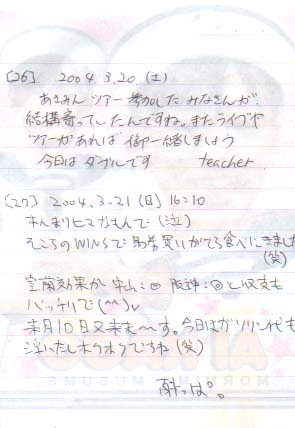 [26] 2004.3.20 (土)
あさみんツアー参加したみなさんが
結構寄っていたんですね。またライブや
ツアーがあれば御一緒しましょう
今日はダブルです teacher
[27] 2004.3.21 (日) 16:10
あんまりヒマなもんで (泣)
そこらのWINSで馬券買いがてら食べにきました
(笑)
宣言効果か 中山:◎ 阪神:◎と収支も
バッチリで(^^)v
来月10日又来ま〜す。今日はガソリン代も
浮いたし
ですね (笑)
酔っぱ。